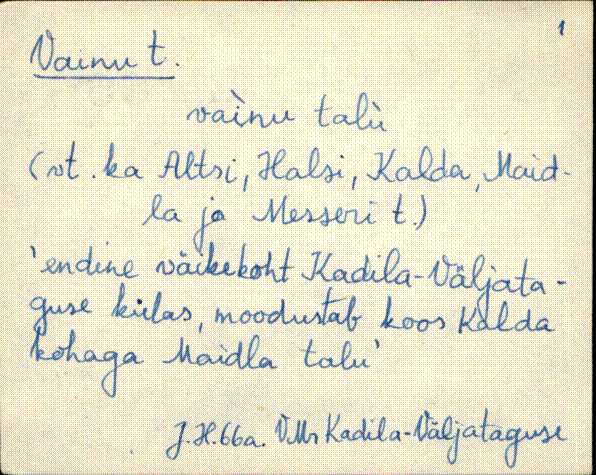 1
Vainu t.
vàinu talù
(vt. ka Altsi, Halsi, Kalda, Maid-
la ja Messeri t.)
'endine väikekoht Kadila-Väljata-
guse külas, moodustab koos Kalda
kohaga Maidla talu'
J.H.66a. VMr Kadila-Väljataguse